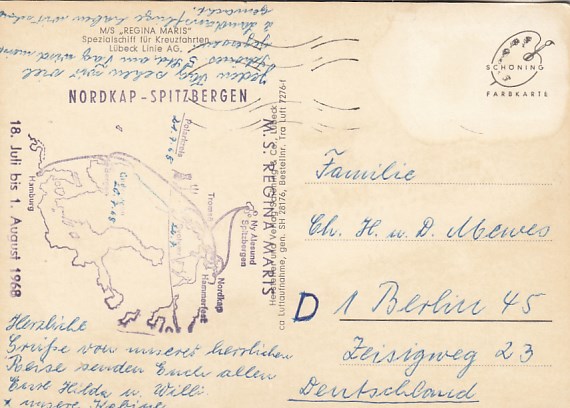 M/S „REGINA MARIS"
Spezialschiff für Kreuzfahrten
Lübeck Linie AG.
NORDKAP-SPITZBERGEN
M.S. REGINA MARIS
18. Juli bis 1. August 1968
Hamburg
Polarkreis
Tromsö
Ny Alesund
Spitzbergen
Nordkap
Hammerfest
Schöning & Co., Lübeck
ca Luftaufnahme, gen. SH 28176, Bestellnr. Tra Luft 7276-1
SCHÖNING
FARBKARTE
Familie
Ch. H. u. D. Mewes
D 1 Berlin 45
Zeisigweg 23
Deutschland
Herzliche
Grüße von unserer herrlichen
Reise senden Euch allen
Eure Hilda u. Willi
x unsere Kabine
jeden Tag sehen wir viel